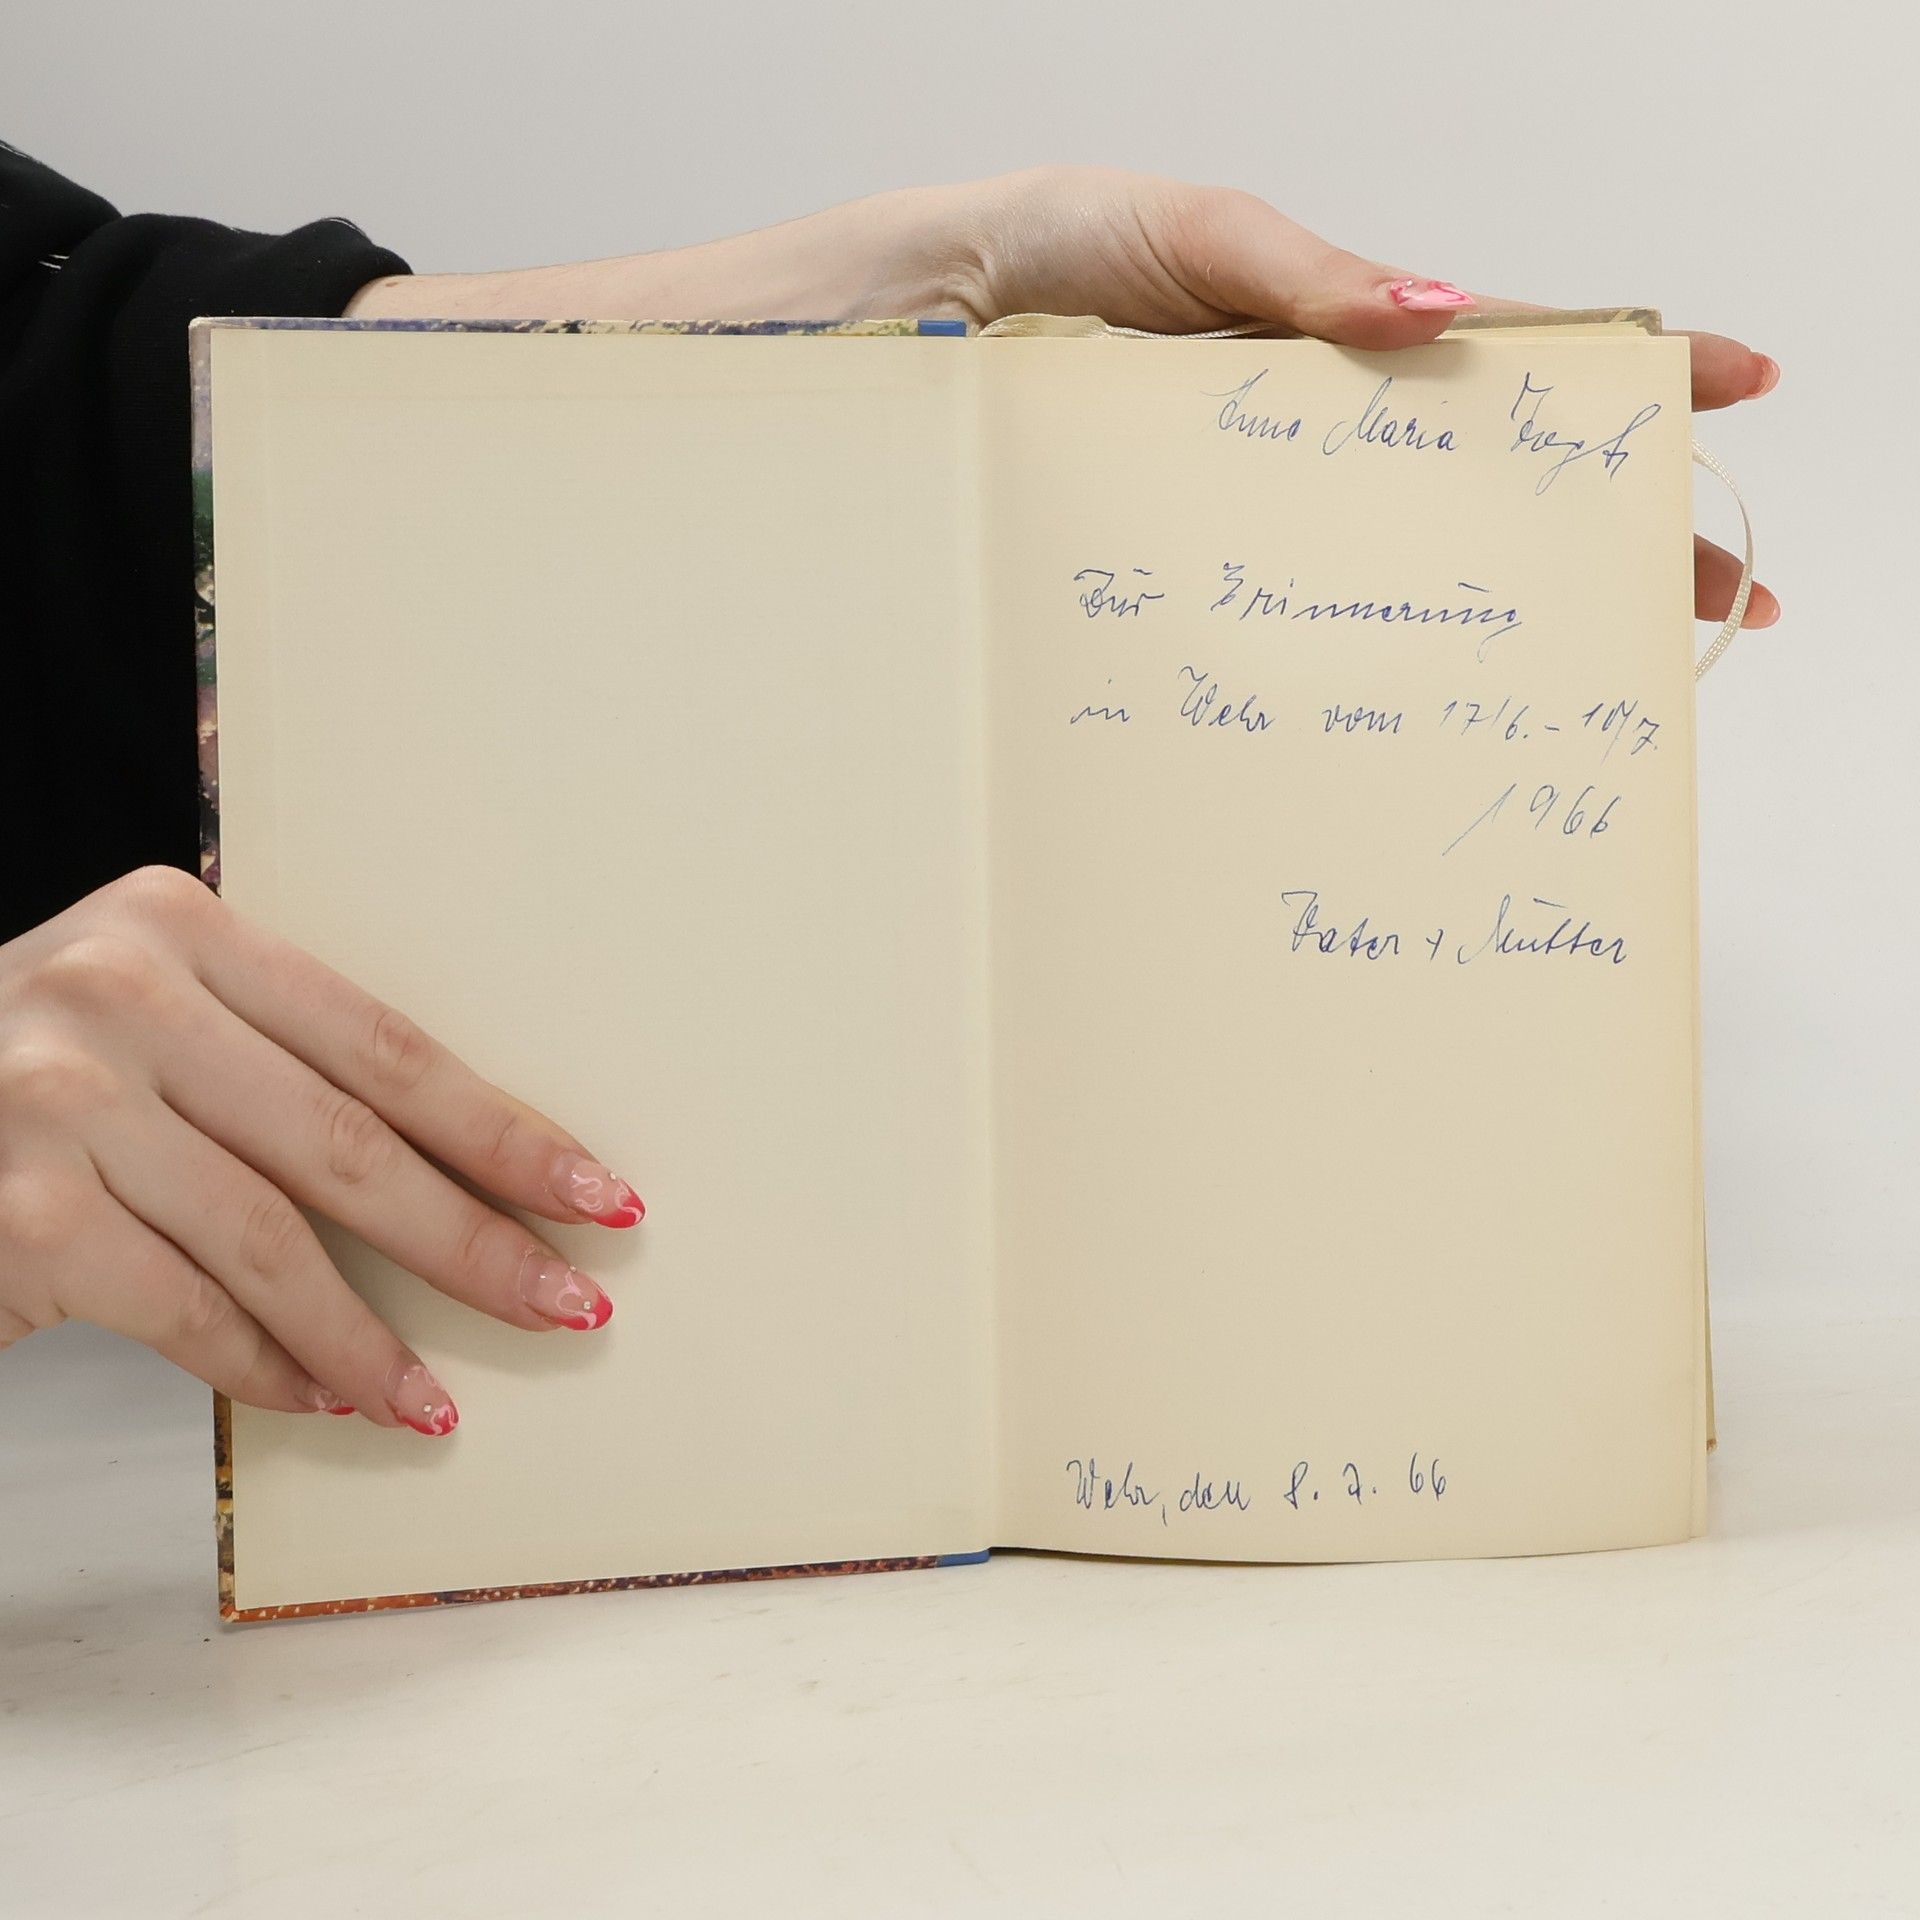 Anne Maria Vogt
Zur Erinnerung
in Wehr vom 17/6. - 10/7.
1966
Vater + Mutter
Wehr, den 8. 7. 66